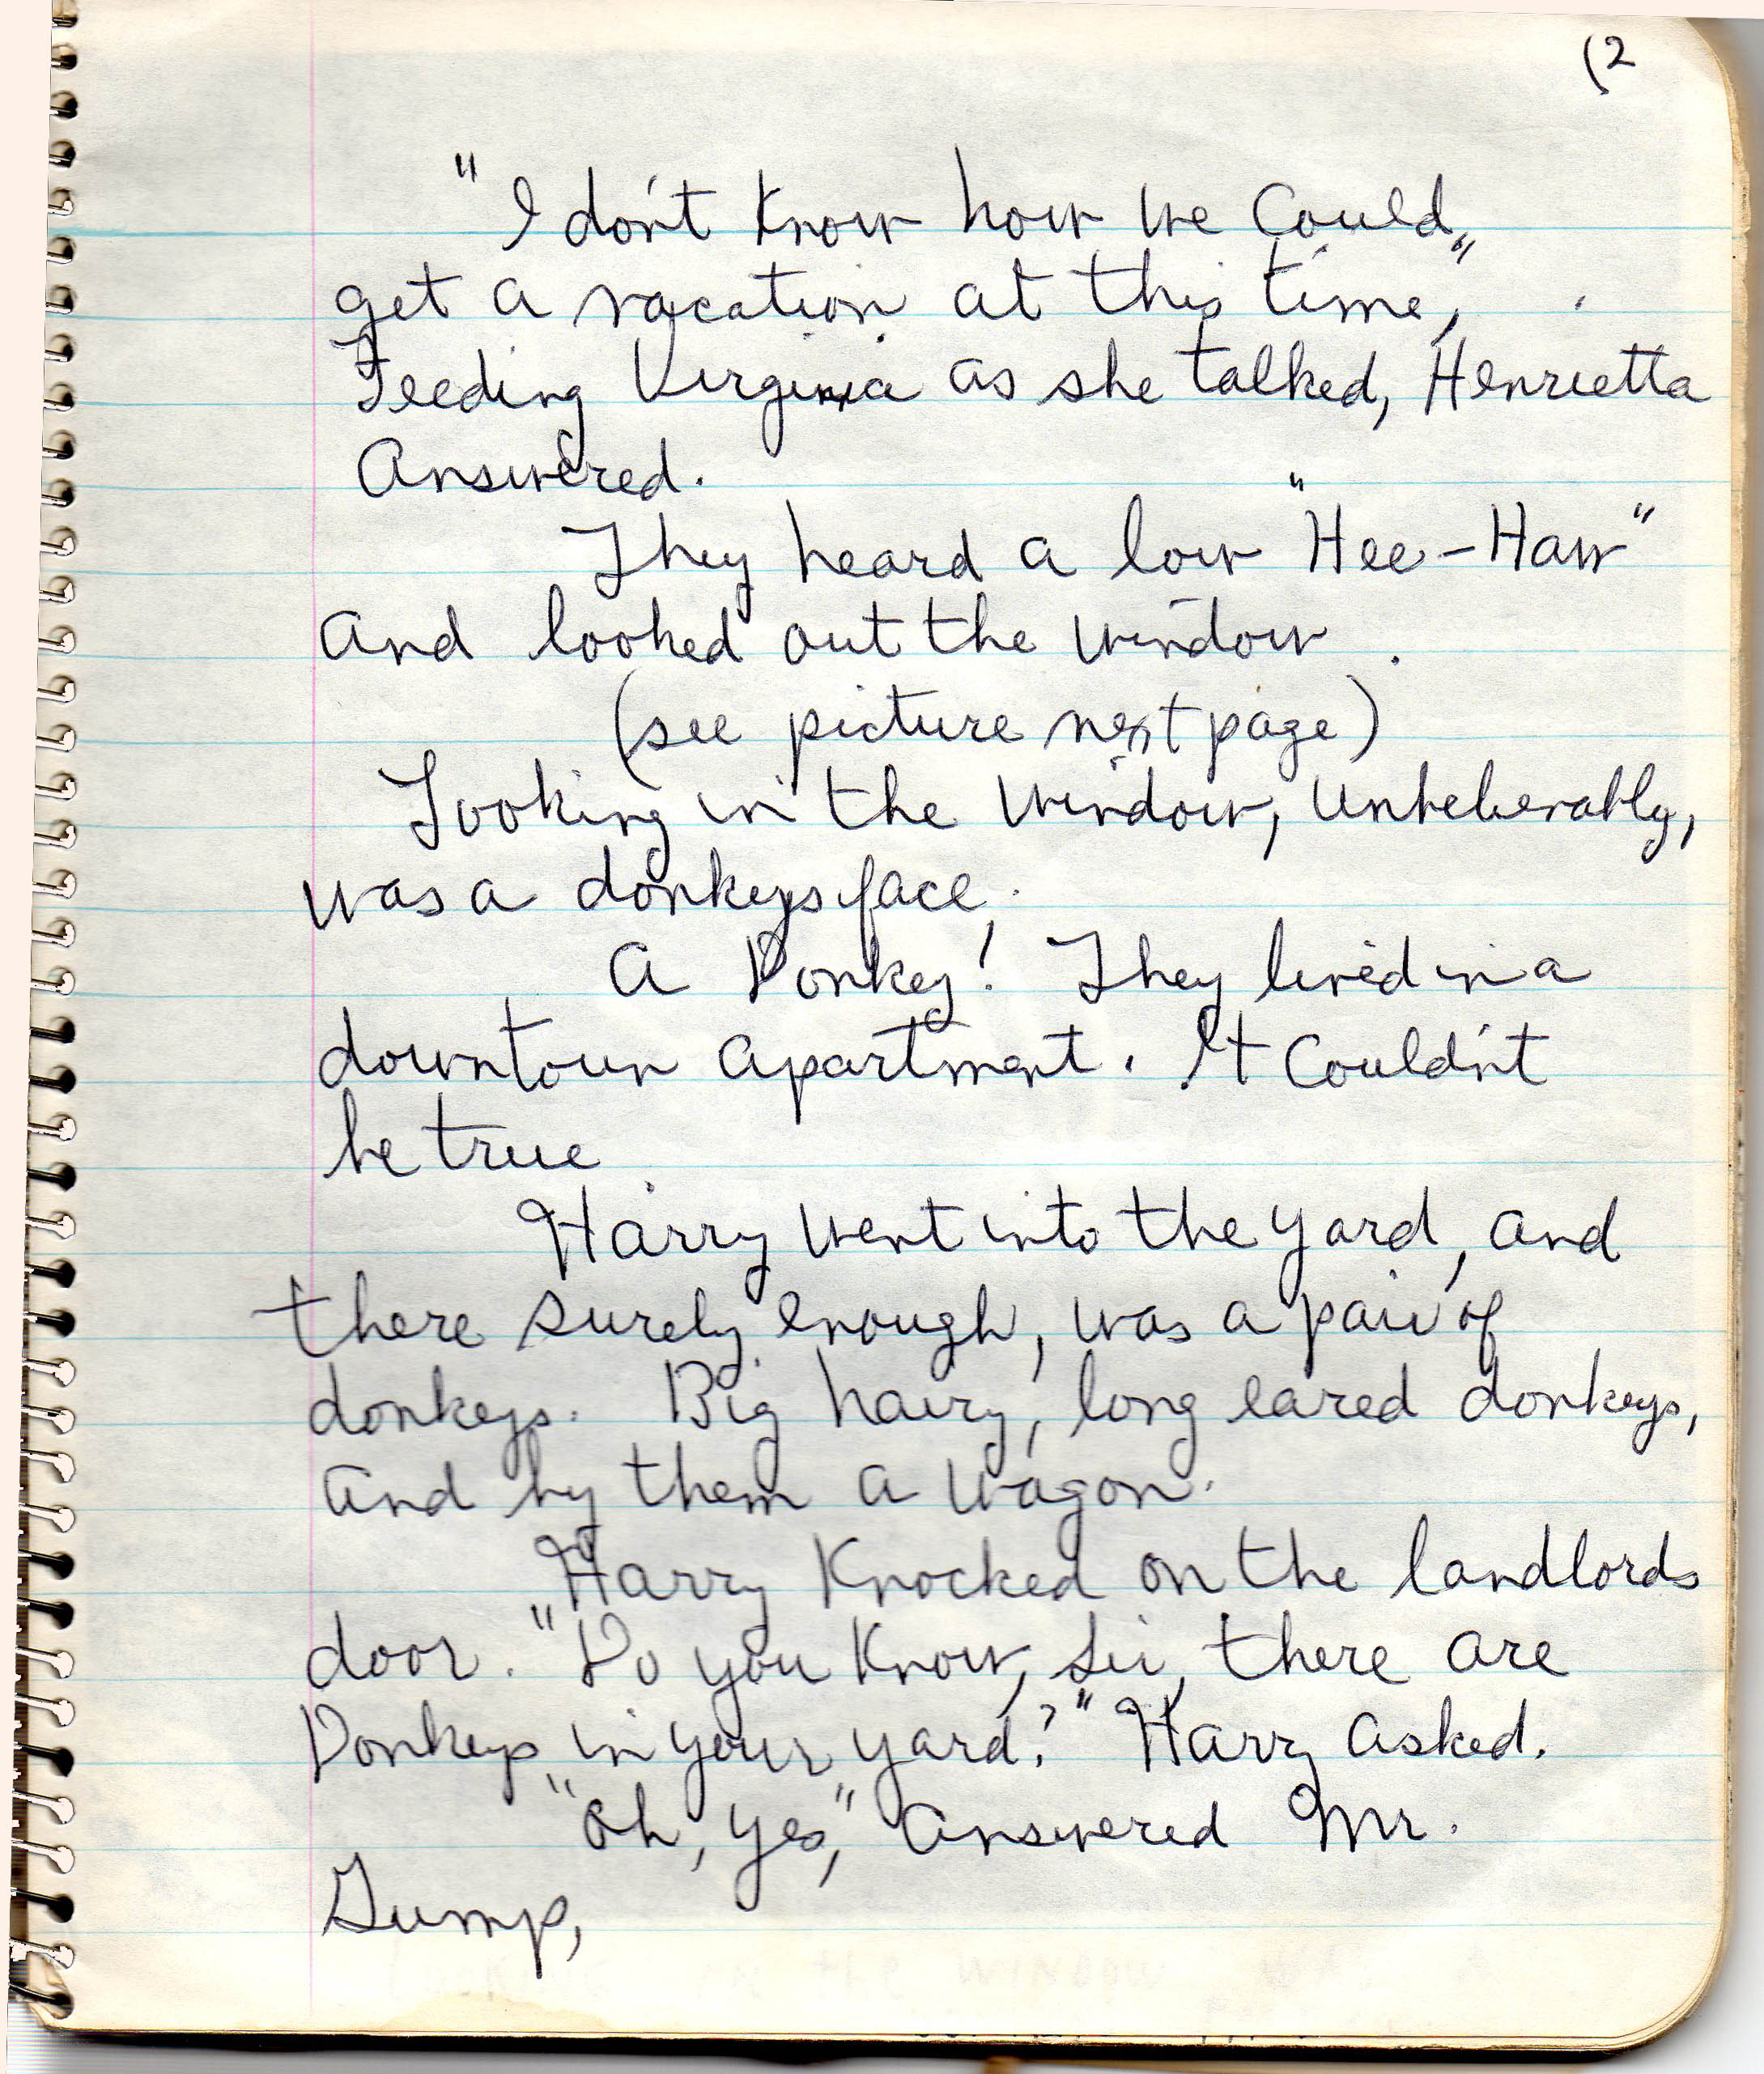 (2
"I don't Know how we Could
get a vacation at this time,"
Feeding Virginia as she talked, Henrietta
Answered.
They heard a low "Hee-Haw"
and looked out the window.
(see picture next page)
Looking in the window, unbelievably,
was a donkeys face.
A Donkey! They lived in a
downtown apartment. It Couldn't
be true
Harry went into the yard, and
there surely enough, was a pair of
donkeys. Big hairy, long eared donkeys,
and by them a wagon.
Harry Knocked on the landlords
door. "Do you Know, Sir, there are
Donkeys in your yard?" Harry asked.
"Oh, yes," answered Mr.